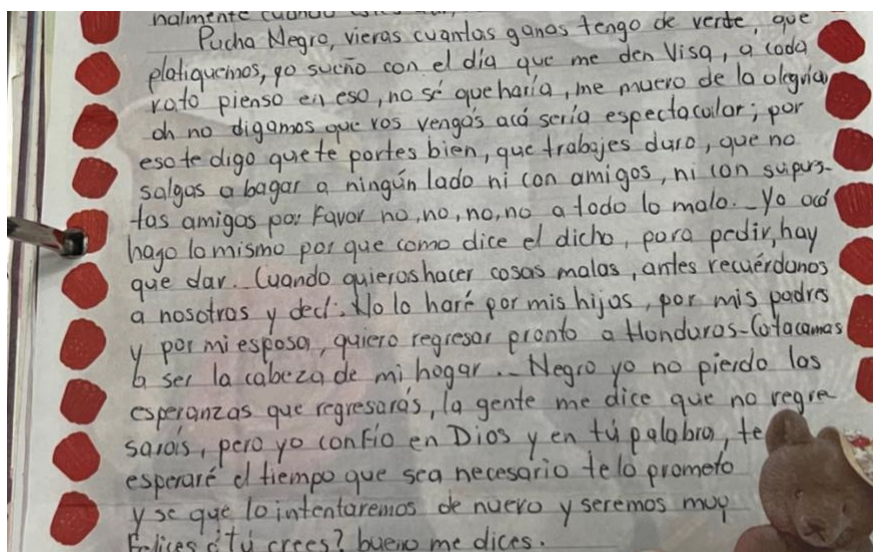 nalmente cuando
Pucha Negro, vieras cuantas ganas tengo de verte, que
platiquemos, yo sueño con el día que me den Visa, a cada
rato pienso en eso, no sé que haría, me muero de la alegria,
oh no digamos que vos vengás acá sería espectacular; por
eso te digo que te portes bien, que trabajes duro, que no
salgas a bagar a ningún lado ni con amigos, ni con supues-
tas amigas por Favor no, no, no, no a todo lo malo._ Yo acá
hago lo mismo por que como dice el dicho, para pedir, hay
que dar. Cuando quieras hacer cosas malas, antes recuérdanos
a nosotros y decí: No lo haré por mis hijas, por mis padres
y por mi esposa, quiero regresar pronto a Honduras-Catacamas
a ser la cabeza de mi hogar._ Negro yo no pierdo las
esperanzas que regresarás, la gente me dice que no regre
sarás, pero yo confío en Dios y en tú palabra, te
esperaré el tiempo que sea necesario te lo prometo
y se que lo intentaremos de nuevo y seremos muy
Felices ¿tú crees? bueno me dices.